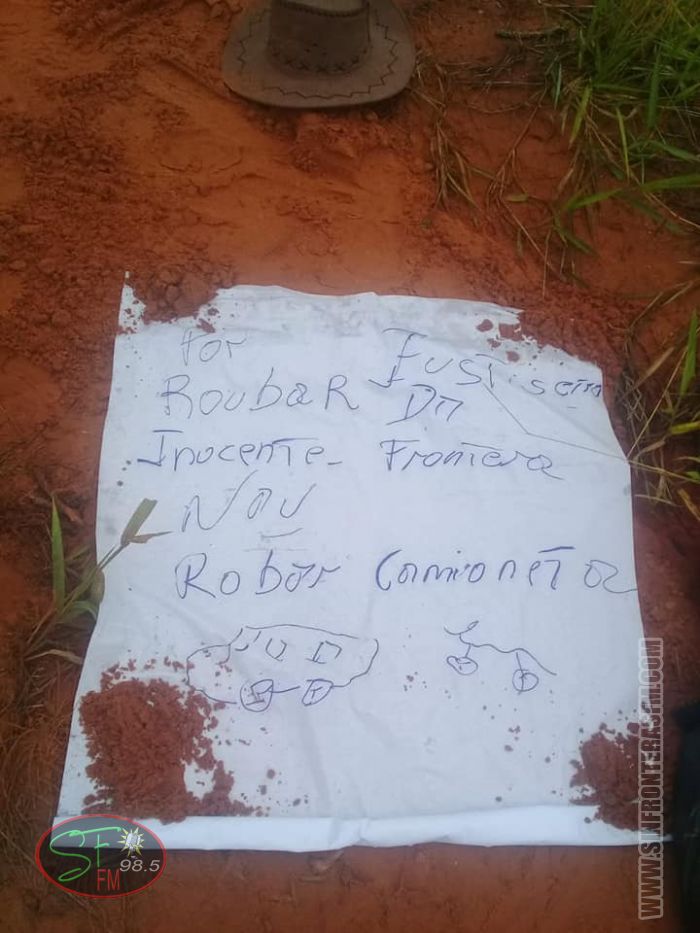 Por
Roubar
Inocente
Nau
Robar Camioneta
Justiseiro
Da
Frontera
SF
FM
98.5
WWW.SINFRONTERASFM.COM